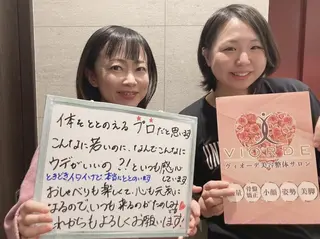 体をととのえるプロだと思います
こんなに若いのに、なんでこんなに
ウデがいいの?!といつも感心
しています
ときどきイタイけど本当にととのいます
おしゃべりも楽しくて、心も元気に
なるのでいつも来るのがたのしみです
これからもよろしくお願いします!
VIGODE
ヴィゴーデ美容整体サロン
骨盤
矯正
小顔
姿勢
美脚